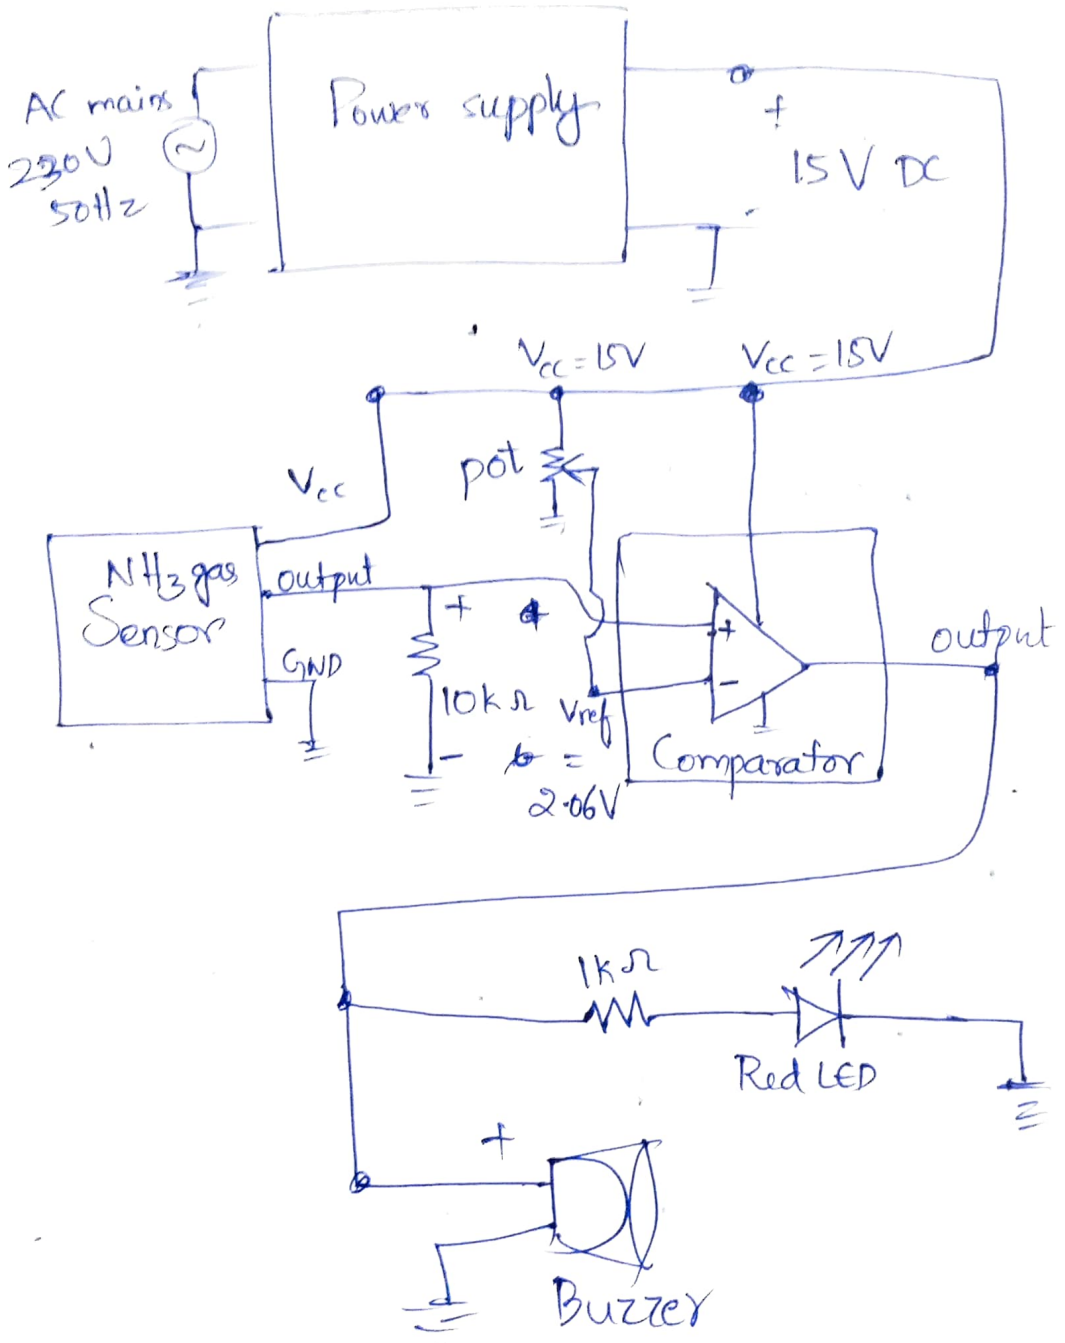 AC mains
230V
50Hz
Power supply
+
15 V DC
-
Vcc = 15V
Vcc = 15V
pot
Vcc
NH3 gas
Sensor
output
GND
+
10k Ω
-
Vref
=
2.06V
+
-
Comparator
output
1k Ω
Red LED
+
Buzzer